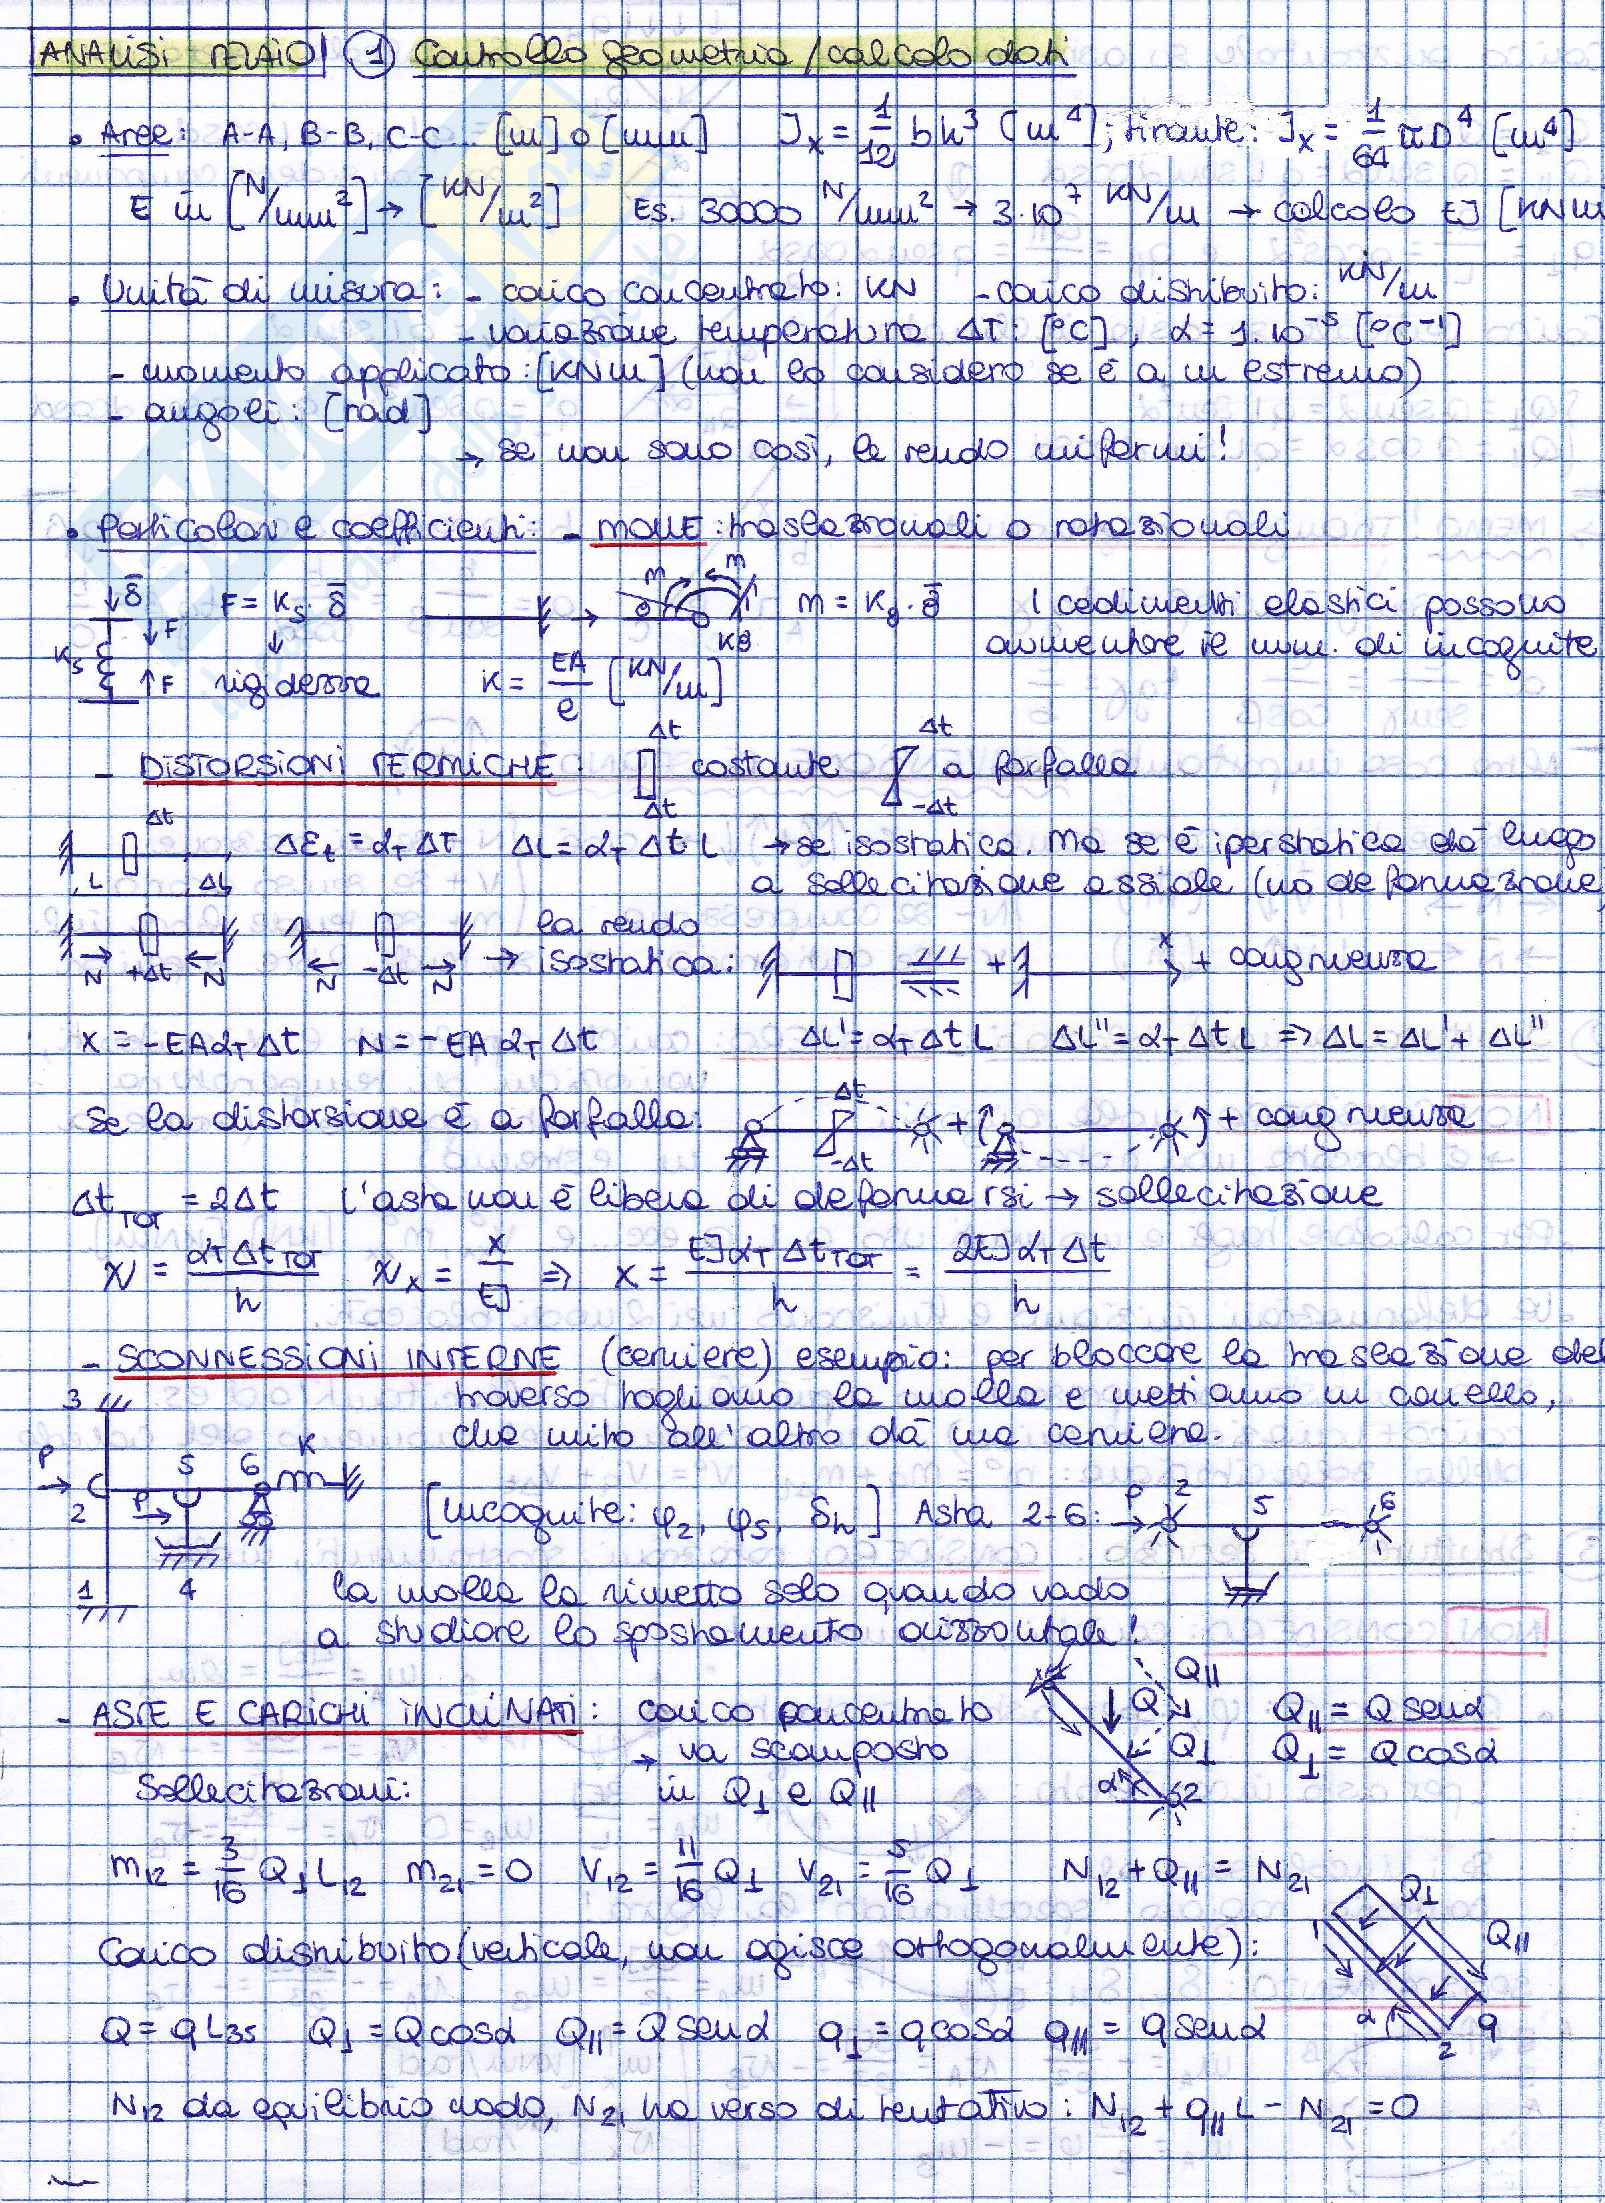 ANALISI TELAIO ① Controllo geometria/calcolo dati
• Aree: A-A, B-B, C-C... [m] o [mm] Jx = 1/12 bh³ [m⁴]; tirante: Jx = 1/64 πD⁴ [m⁴]
E in [N/mm²] → [KN/m²] Es. 30000 N/mm² → 3·10⁷ KN/m → calcolo EJ [KNm
• Unità di misura: - carico concentrato: KN - carico distribuito: KN/m
- variazione temperatura ΔT: [°C], α = 1·10⁻⁵ [°C⁻¹]
- momento applicato: [KNm] (non lo considero se è a un estremo)
- angoli: [rad]
→ se non sono così, le rendo uniformi!
• Particolari e coefficienti: - MOLLE: traslazionali o rotazionali
δ̄ F = Ks·δ̄ m m m = Kθ·θ̄ I cedimenti elastici possono
F Kθ aumentare il num. di incognite
Ks F rigidezza K = EA/l [KN/m]
- DISTORSIONI TERMICHE Δt Δt costante Δt -Δt a farfalla
Δt L ΔL ΔEt = αT ΔT ΔL = αT Δt L → se isostatica. Ma se è iperstatica dà luogo
a sollecitazione assiale (no deformazione)
N +Δt N N -Δt N la rendo
→ isostatica: + x + congruenza
x = -EAαTΔt N = -EAαTΔt ΔL' = αTΔt L ΔL'' = αTΔt L ⇒ ΔL = ΔL' + ΔL''
Se la distorsione è a farfalla: Δt -Δt + + congruenza
ΔtTOT = 2Δt L'asta non è libera di deformarsi → sollecitazione
χ = αTΔtTOT/h χx = x/EJ ⇒ x = EJαTΔtTOT/h = 2EJαTΔt/h
- SCONNESSIONI INTERNE (cerniere) esempio: per bloccare la traslazione del
traverso togliamo la molla e mettiamo un carrello,
che unito all'altro dà una cerniera.
3 P 2 5 6 K P 1 4
[incognite: φ2, φ5, δh] Asta 2-6: P 2 5 6
la molla la rimetto solo quando vado
a studiare lo spostamento orizzontale!
- ASTE E CARICHI INCLINATI: carico concentrato
→ va scomposto
in Q⊥ e Q∥
Q Q∥ Q⊥ α 2
Q∥ = Q senα
Q⊥ = Q cosα
Sollecitazioni:
m12 = 3/16 Q⊥L12 m21 = 0 V12 = 11/16 Q⊥ V21 = 5/16 Q⊥ N12 + Q∥ = N21
Carico distribuito (verticale, non agisce orthogonalmente):
1 Q⊥ Q∥ α 2 q
Q = qL35 Q⊥ = Qcosα Q∥ = Qsenα q⊥ = qcosα q∥ = qsenα
N12 da equilibrio nodo, N21 ha verso di tentativo: N12 + q∥L - N21 = 0